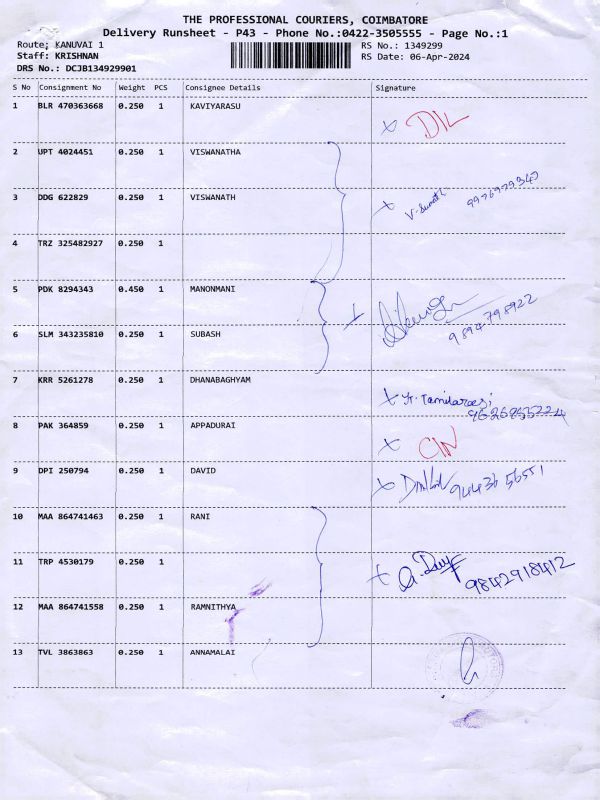 THE PROFESSIONAL COURIERS, COIMBATORE
Delivery Runsheet - P43 - Phone No.:0422-3505555 - Page No.:1
Route: KANUVAI 1
RS No.: 1349299
Staff: KRISHNAN
RS Date: 06-Apr-2024
DRS No.: DCJB134929901
S No Consignment No Weight PCS Consignee Details Signature
1 BLR 470363668 0.250 1 KAVIYARASU
x DIL
2 UPT 4024451 0.250 1 VISWANATHA
3 DDG 622829 0.250 1 VISWANATH
x V. Sumathi
4 TRZ 325482927 0.250 1
5 PDK 8294343 0.450 1 MANONMANI
x 9894798922
6 SLM 343235810 0.250 1 SUBASH
7 KRR 5261278 0.250 1 DHANABAGHYAM
x
8 PAK 364859 0.250 1 APPADURAI
x
9 DPI 250794 0.250 1 DAVID
x 9443656551
10 MAA 864741463 0.250 1 RANI
11 TRP 4530179 0.250 1
x 9842918412
12 MAA 864741558 0.250 1 RAMNITHYA
13 TVL 3863863 0.250 1 ANNAMALAI